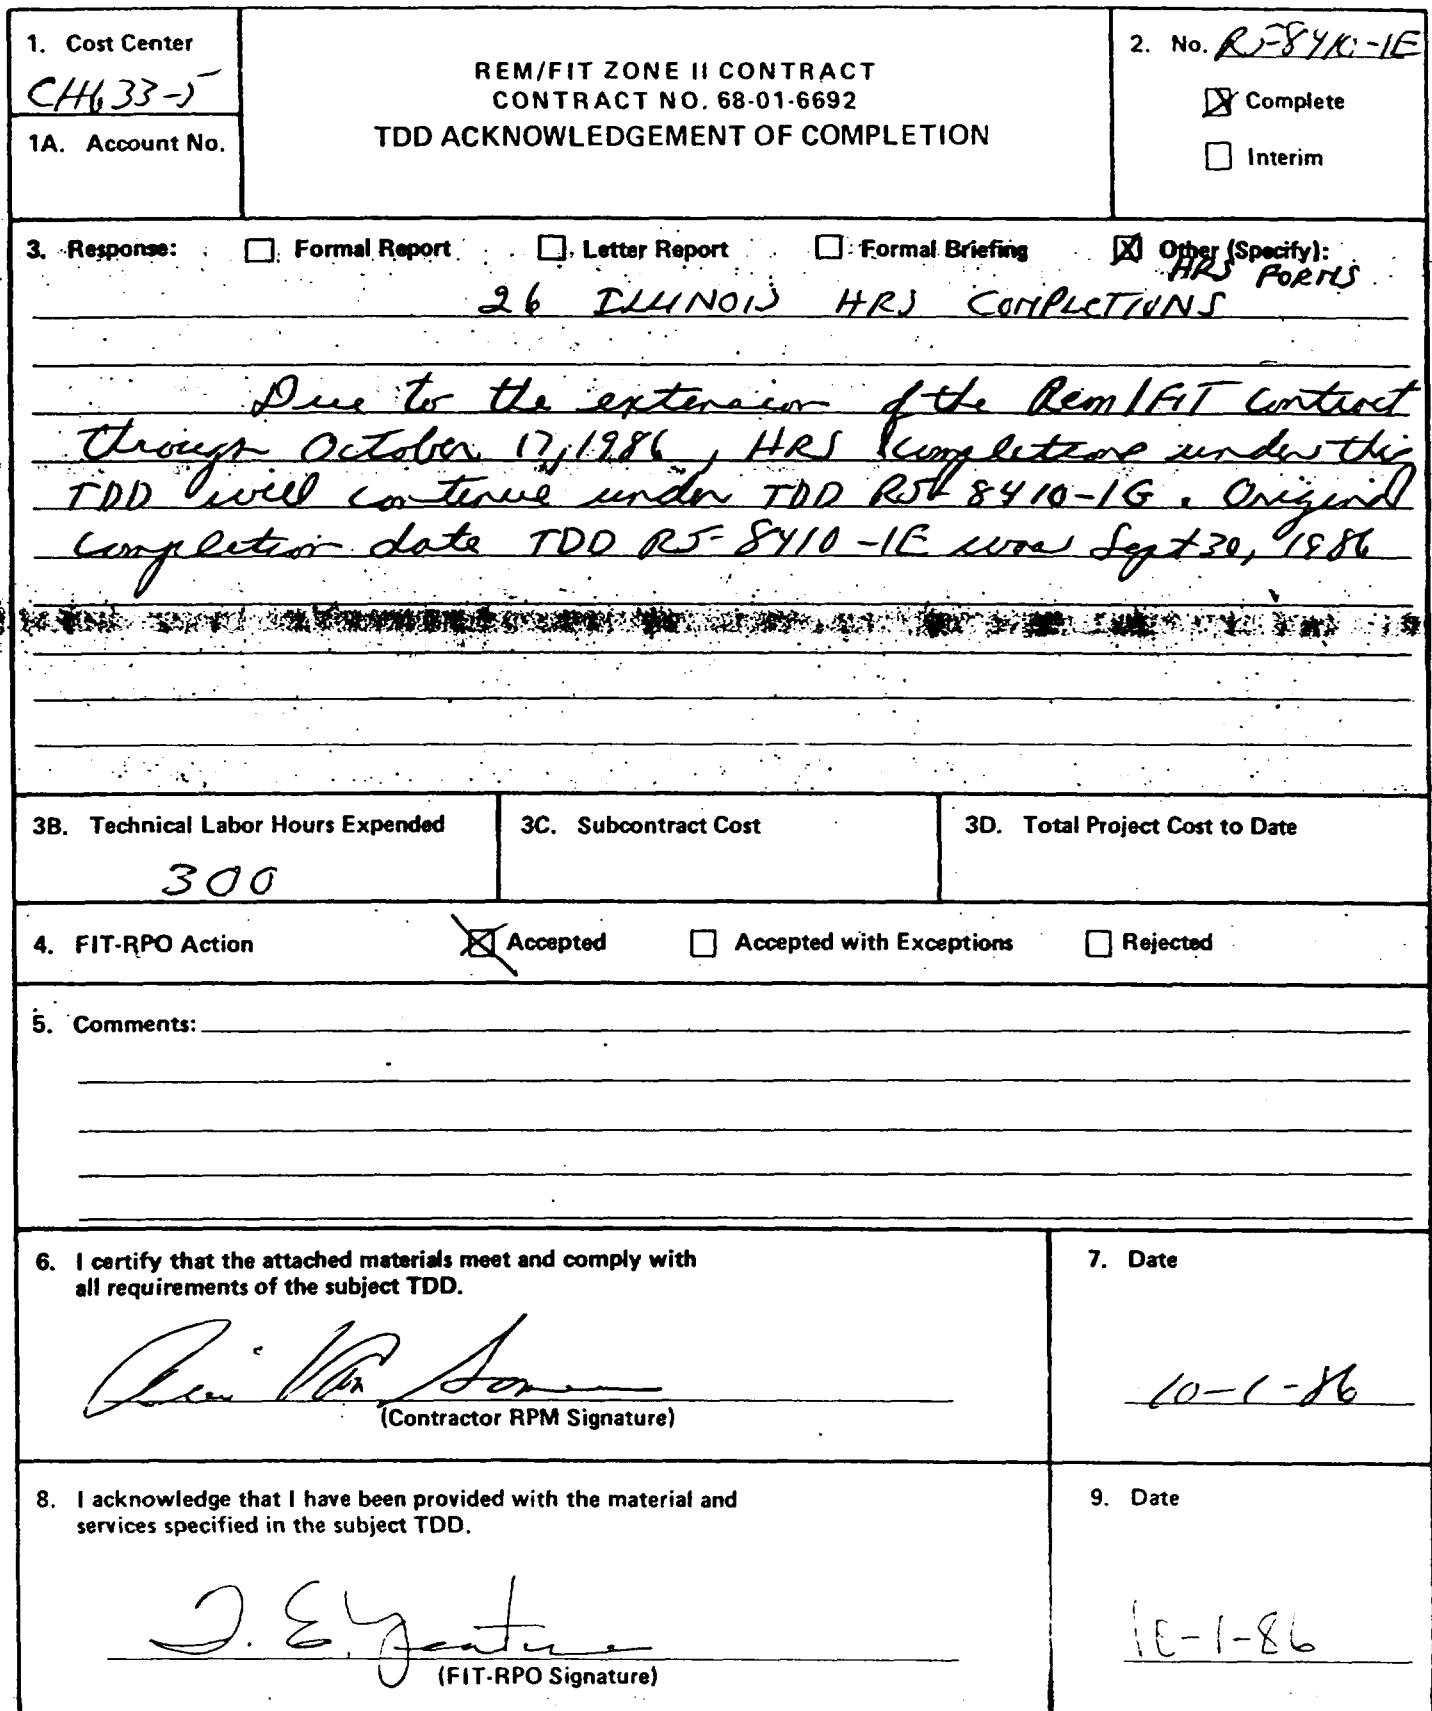 1. Cost Center
CH633-5
1A. Account No.
REM/FIT ZONE II CONTRACT
CONTRACT NO. 68-01-6692
TDD ACKNOWLEDGEMENT OF COMPLETION
2. No. R5-8410-1E
☒ Complete
☐ Interim
3. Response: ☐ Formal Report ☐ Letter Report ☐ Formal Briefing ☒ Other (Specify):
HRS FORMS
26 ILLINOIS HRS COMPLETIONS
Due to the extension of the Rem/FIT contract
through October 17, 1986, HRS completions under this
TDD will continue under TDD R5-8410-1G. Original
completion date TDD R5-8410-1E was Sept 30, 1986
3B. Technical Labor Hours Expended
300
3C. Subcontract Cost
3D. Total Project Cost to Date
4. FIT-RPO Action ☒ Accepted ☐ Accepted with Exceptions ☐ Rejected
5. Comments:
6. I certify that the attached materials meet and comply with
all requirements of the subject TDD.
Van
(Contractor RPM Signature)
7. Date
10-1-86
8. I acknowledge that I have been provided with the material and
services specified in the subject TDD.
(FIT-RPO Signature)
9. Date
10-1-86